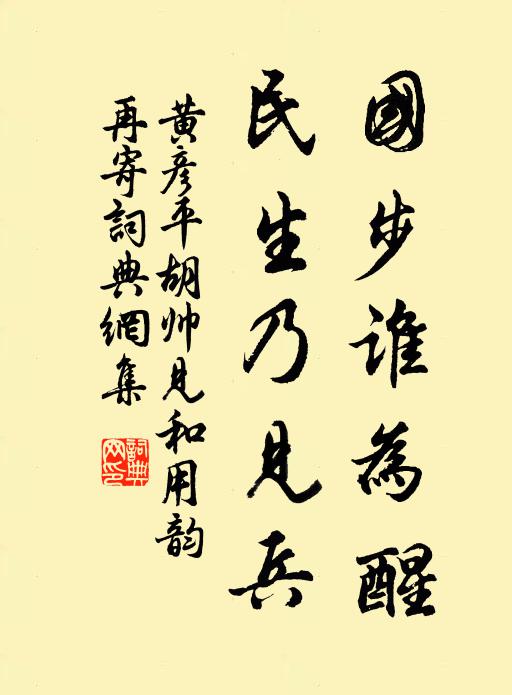 國步誰為醒
民生乃見兵
黄彦平胡帅見和用韵
再寄詞典網集
詞典网印